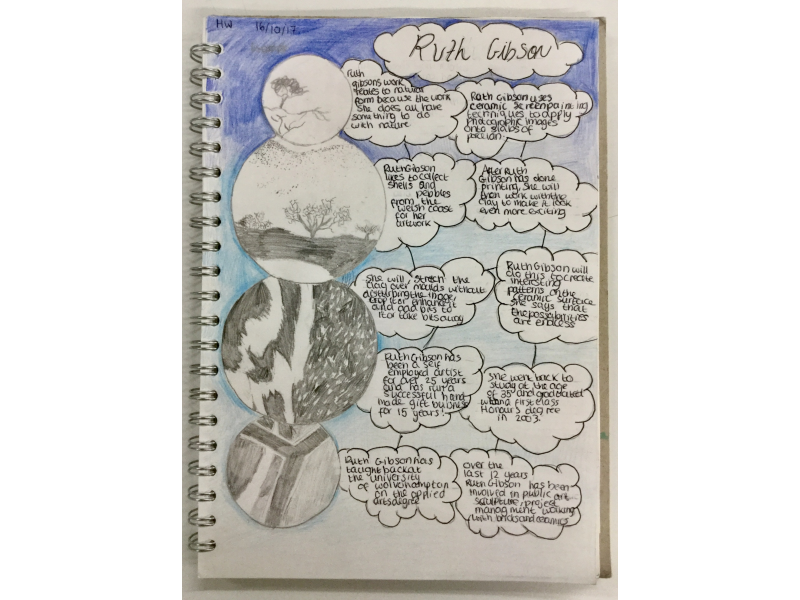 HW 16/10/17
Ruth Gibson
Ruth
gibsons work
relates to natural
form because the work
She does all have
something to do
with nature
Ruth Gibson uses
ceramic screenpainting
techniques to apply
photographic images
onto slabs of
Ruth Gibson
likes to collect
shells and
pebbles
from the
welsh coast
for her
artwork
After Ruth
Gibson has done
printing, she will
then work with the
clay to make it look
even more exciting
She will, stretch the
clay over moulds without
disturbing the image,
crop it or enhance it
and add bits to
it or take bits away
Ruth Gibson will
do this to create
interesting
patterns on the
ceramic surface
She says that
the possibilities
are endless
Ruth Gibson has
been a self
employed artist
for over 25 years
and has run a
successful hand
made gift buisness
for 15 years!
She went back to
study at the age
of 35 and graduated
with a first class
Honours degree
in 2003.
Ruth Gibson has
taught back at
the university
of wolverhampton
on the applied
arts degree
over the
last 12 years
Ruth Gibson has been
involved in public art
sculpture, project
managment working
with bricks and ceramics